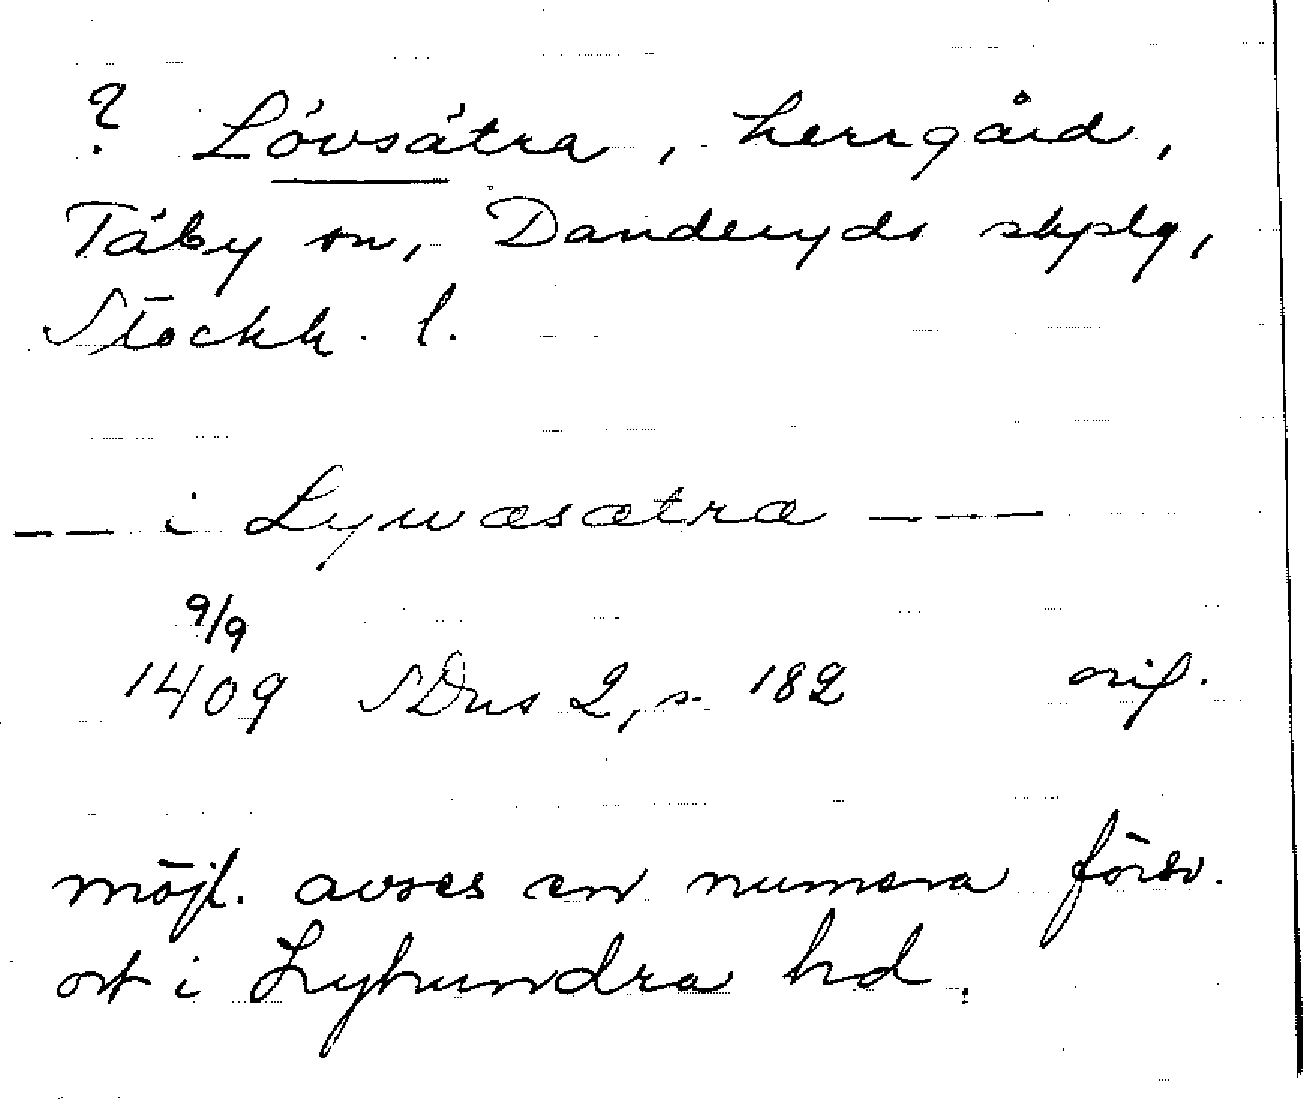 ? Lövsätra, herrgård,
Täby sn, Danderyds skplg,
Stockh. l.
--- i Lywæsætra ---
9/9
1409 SDns 2, s. 182 orig.
möjl. avses en numera försv.
ort i Lyhundra hd.